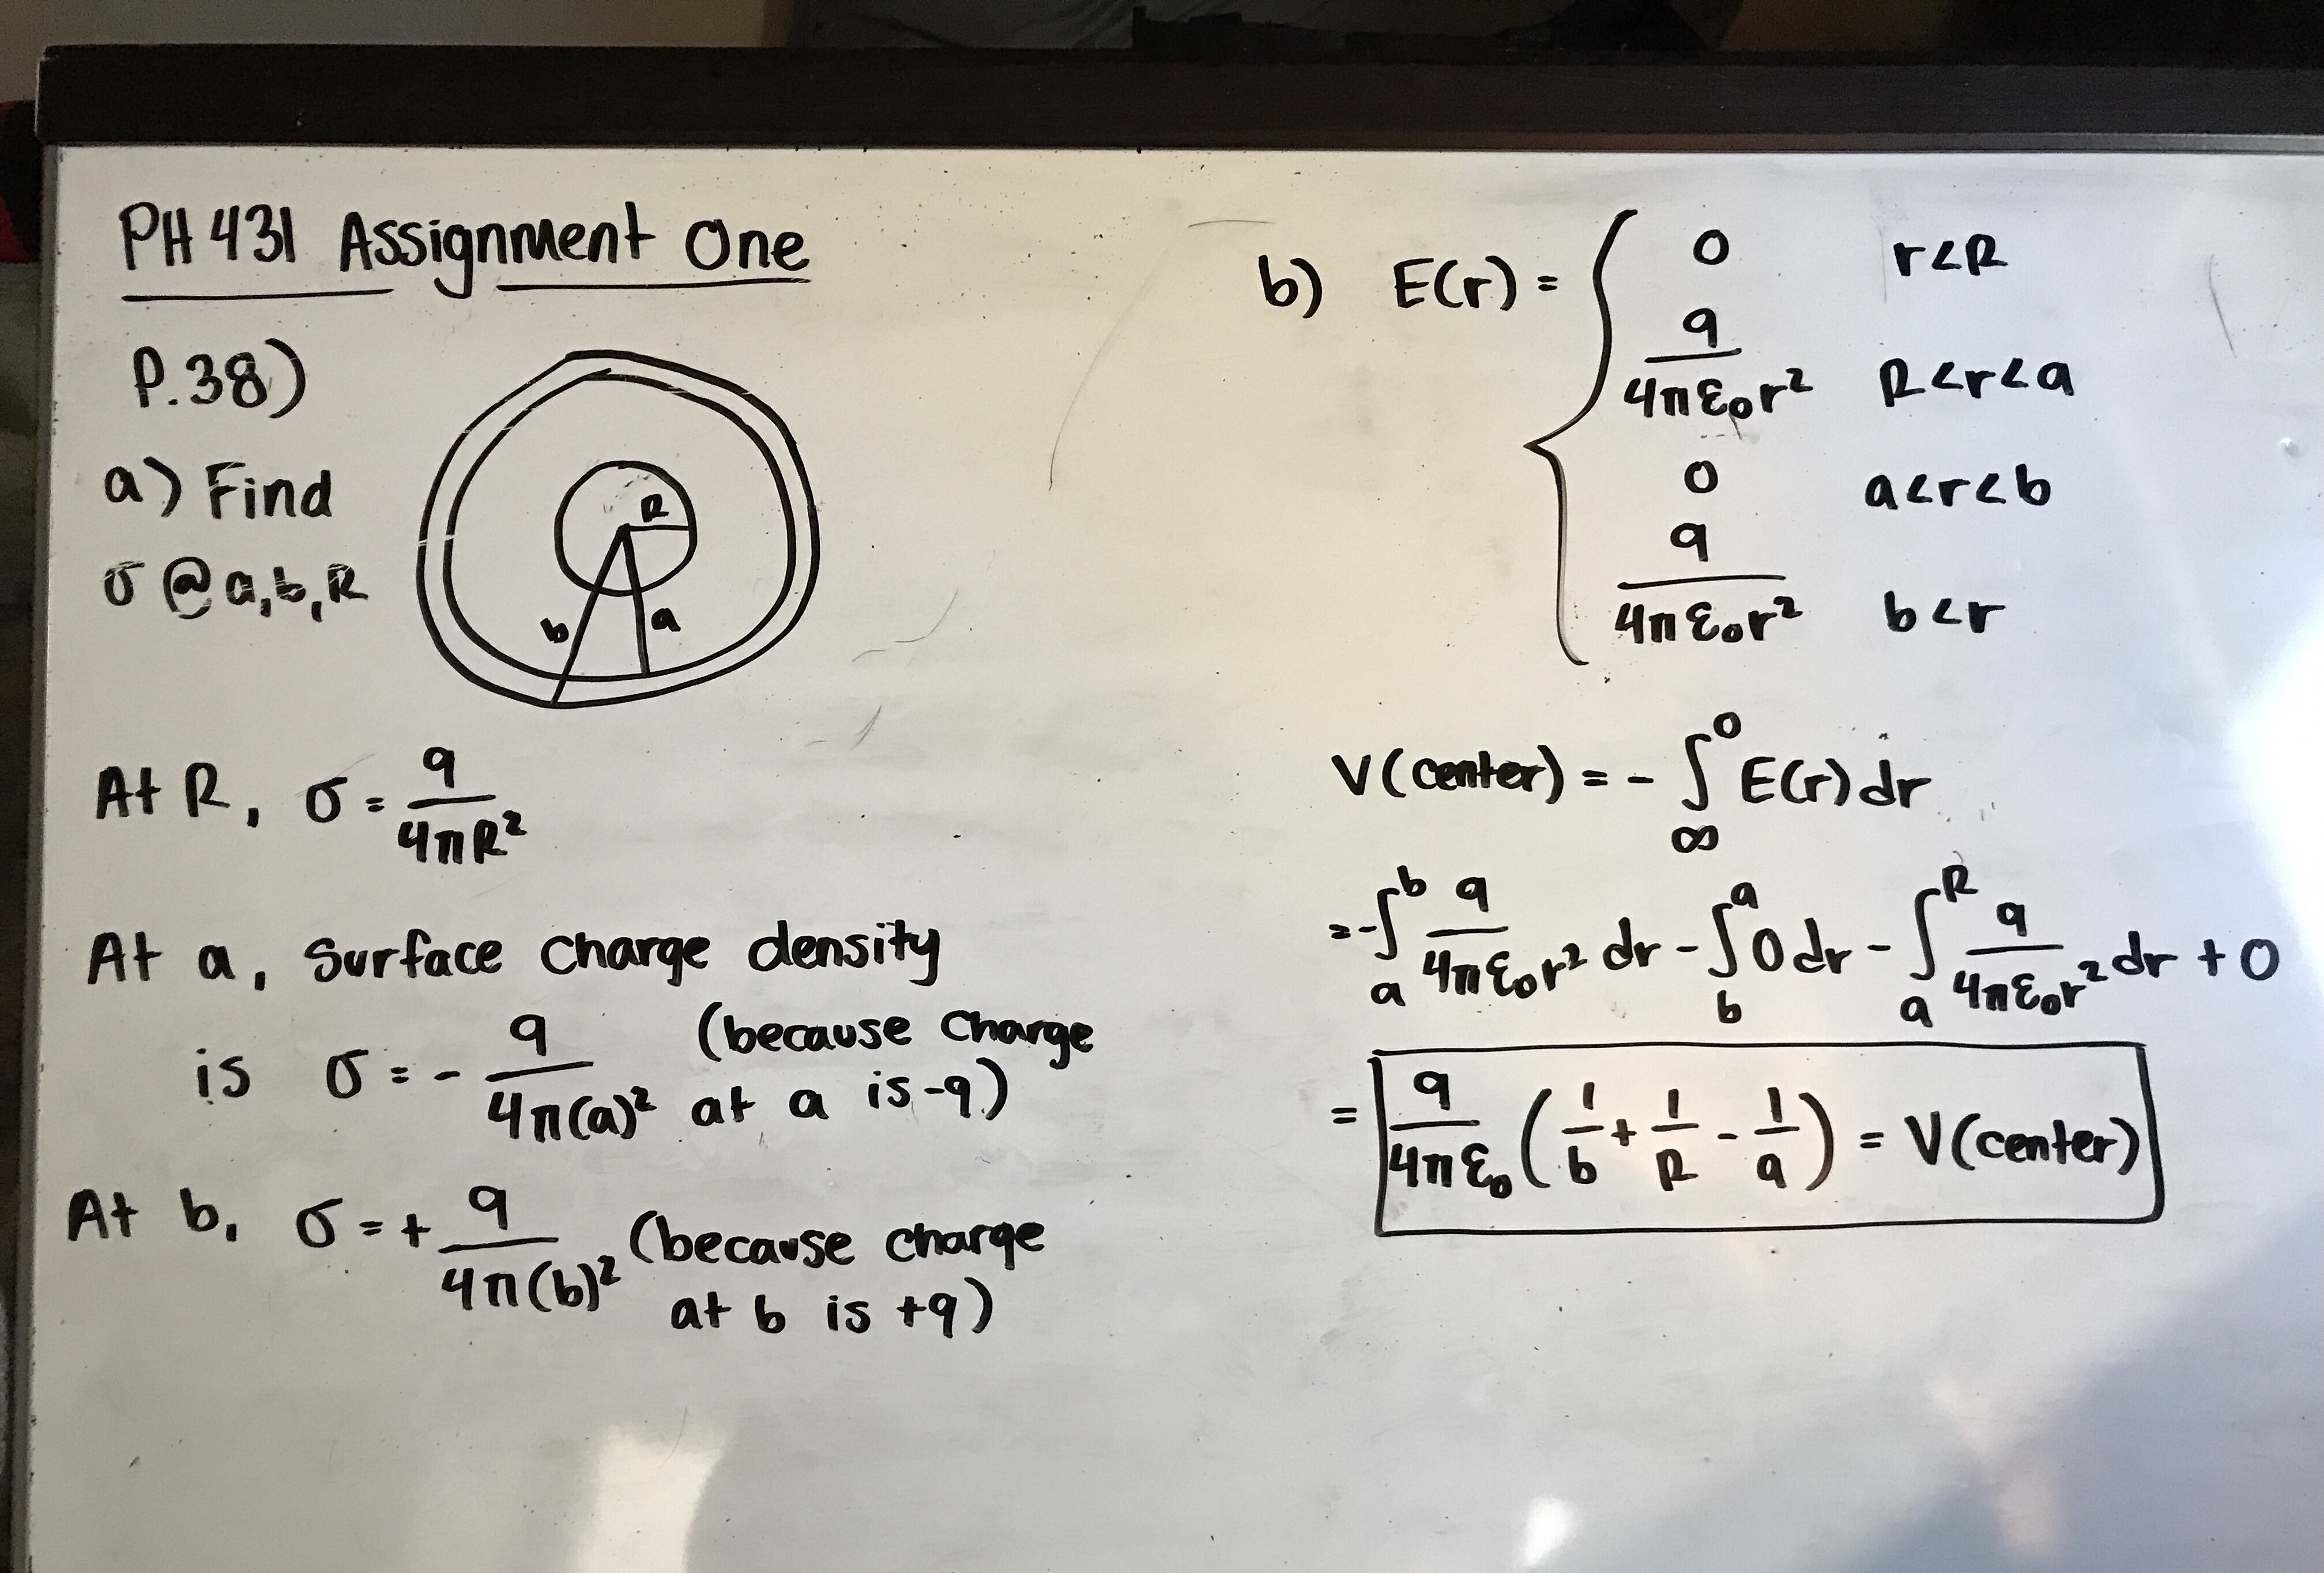 PH 431 Assignment One
P.38)
a) Find
σ @ a, b, R
R
b
a
At R, σ = q/4πR²
At a, surface charge density
is σ = - q/4π(a)² (because charge
at a is -q)
At b, σ = + q/4π(b)² (because charge
at b is +q)
b) E(r) = {
0 r<R
q/4πε₀r² R<r<a
0 a<r<b
q/4πε₀r² b<r
V(center) = - ∫_∞^0 E(r) dr
= - ∫_a^b q/4πε₀r² dr - ∫_b^a 0 dr - ∫_a^R q/4πε₀r² dr + 0
= q/4πε₀ (1/b + 1/R - 1/a) = V(center)